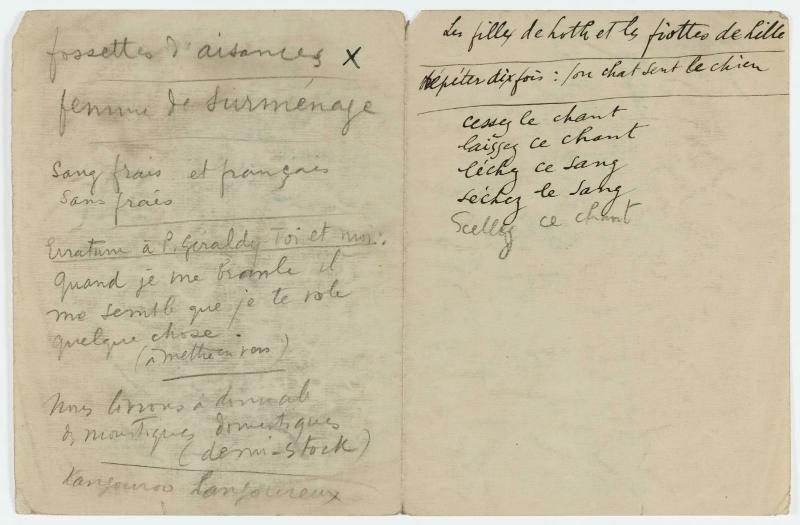 fossettes d'aisances x
femme de surménage
Sang frais et français
Sans frais
Erratum à P. Géraldy Toi et moi :
Quand je me branle il
me semble que je te vole
quelque chose.
(à mettre en vers)
Nous livrons à domicile
des moustiques domestiques
(demi-stock)
Kangourou langoureux
Les filles de Loth et les fiottes de Lille
Répéter dix fois : Mon chat sent le chien
cessez le chant
laissez ce chant
léchez ce sang
séchez le sang
Scellez ce chant